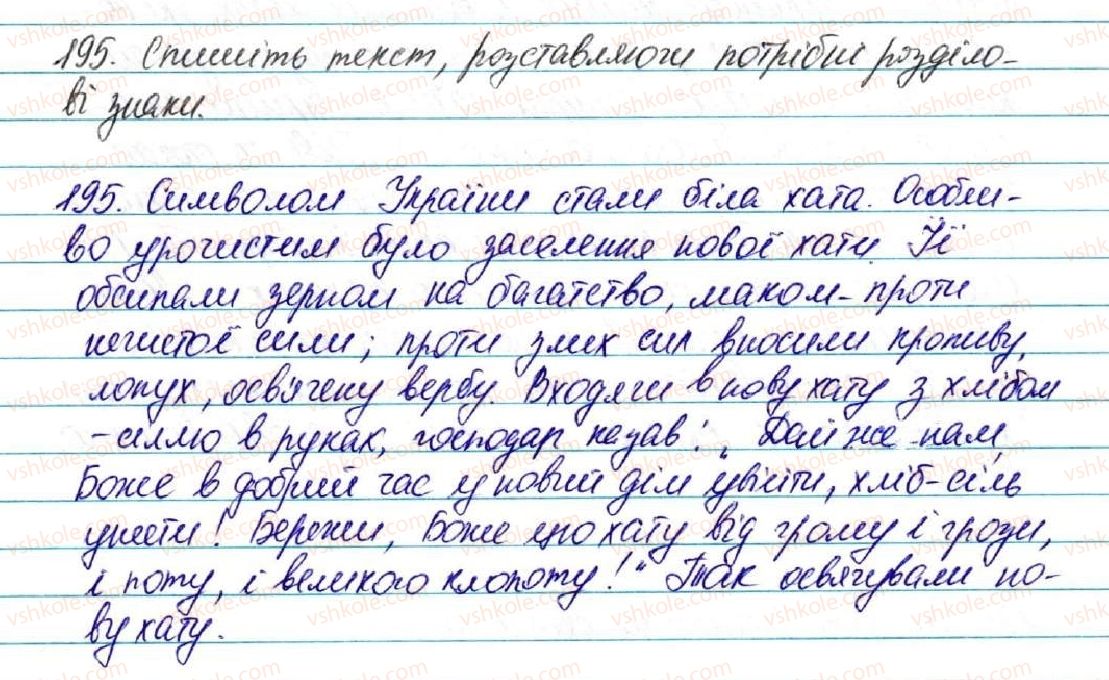 195. Спишіть текст, розставляючи потрібні розділо-
ві знаки.
195. Символом України стала біла хата. Особли-
во урочистим було заселення нової хати. Її
обсипали зерном на багатство, маком - проти
нечистої сили; проти злих сил вносили кропиву,
лопух, освячену вербу. Входячи в нову хату з хлібом
-сіллю в руках, господар казав: „Дай же нам,
Боже в добрий час у новий дім увійти, хліб-сіль
унести! Бережи, Боже цю хату від грому і грози,
і поту, і великого клопоту!" Так освячували но-
ву хату.